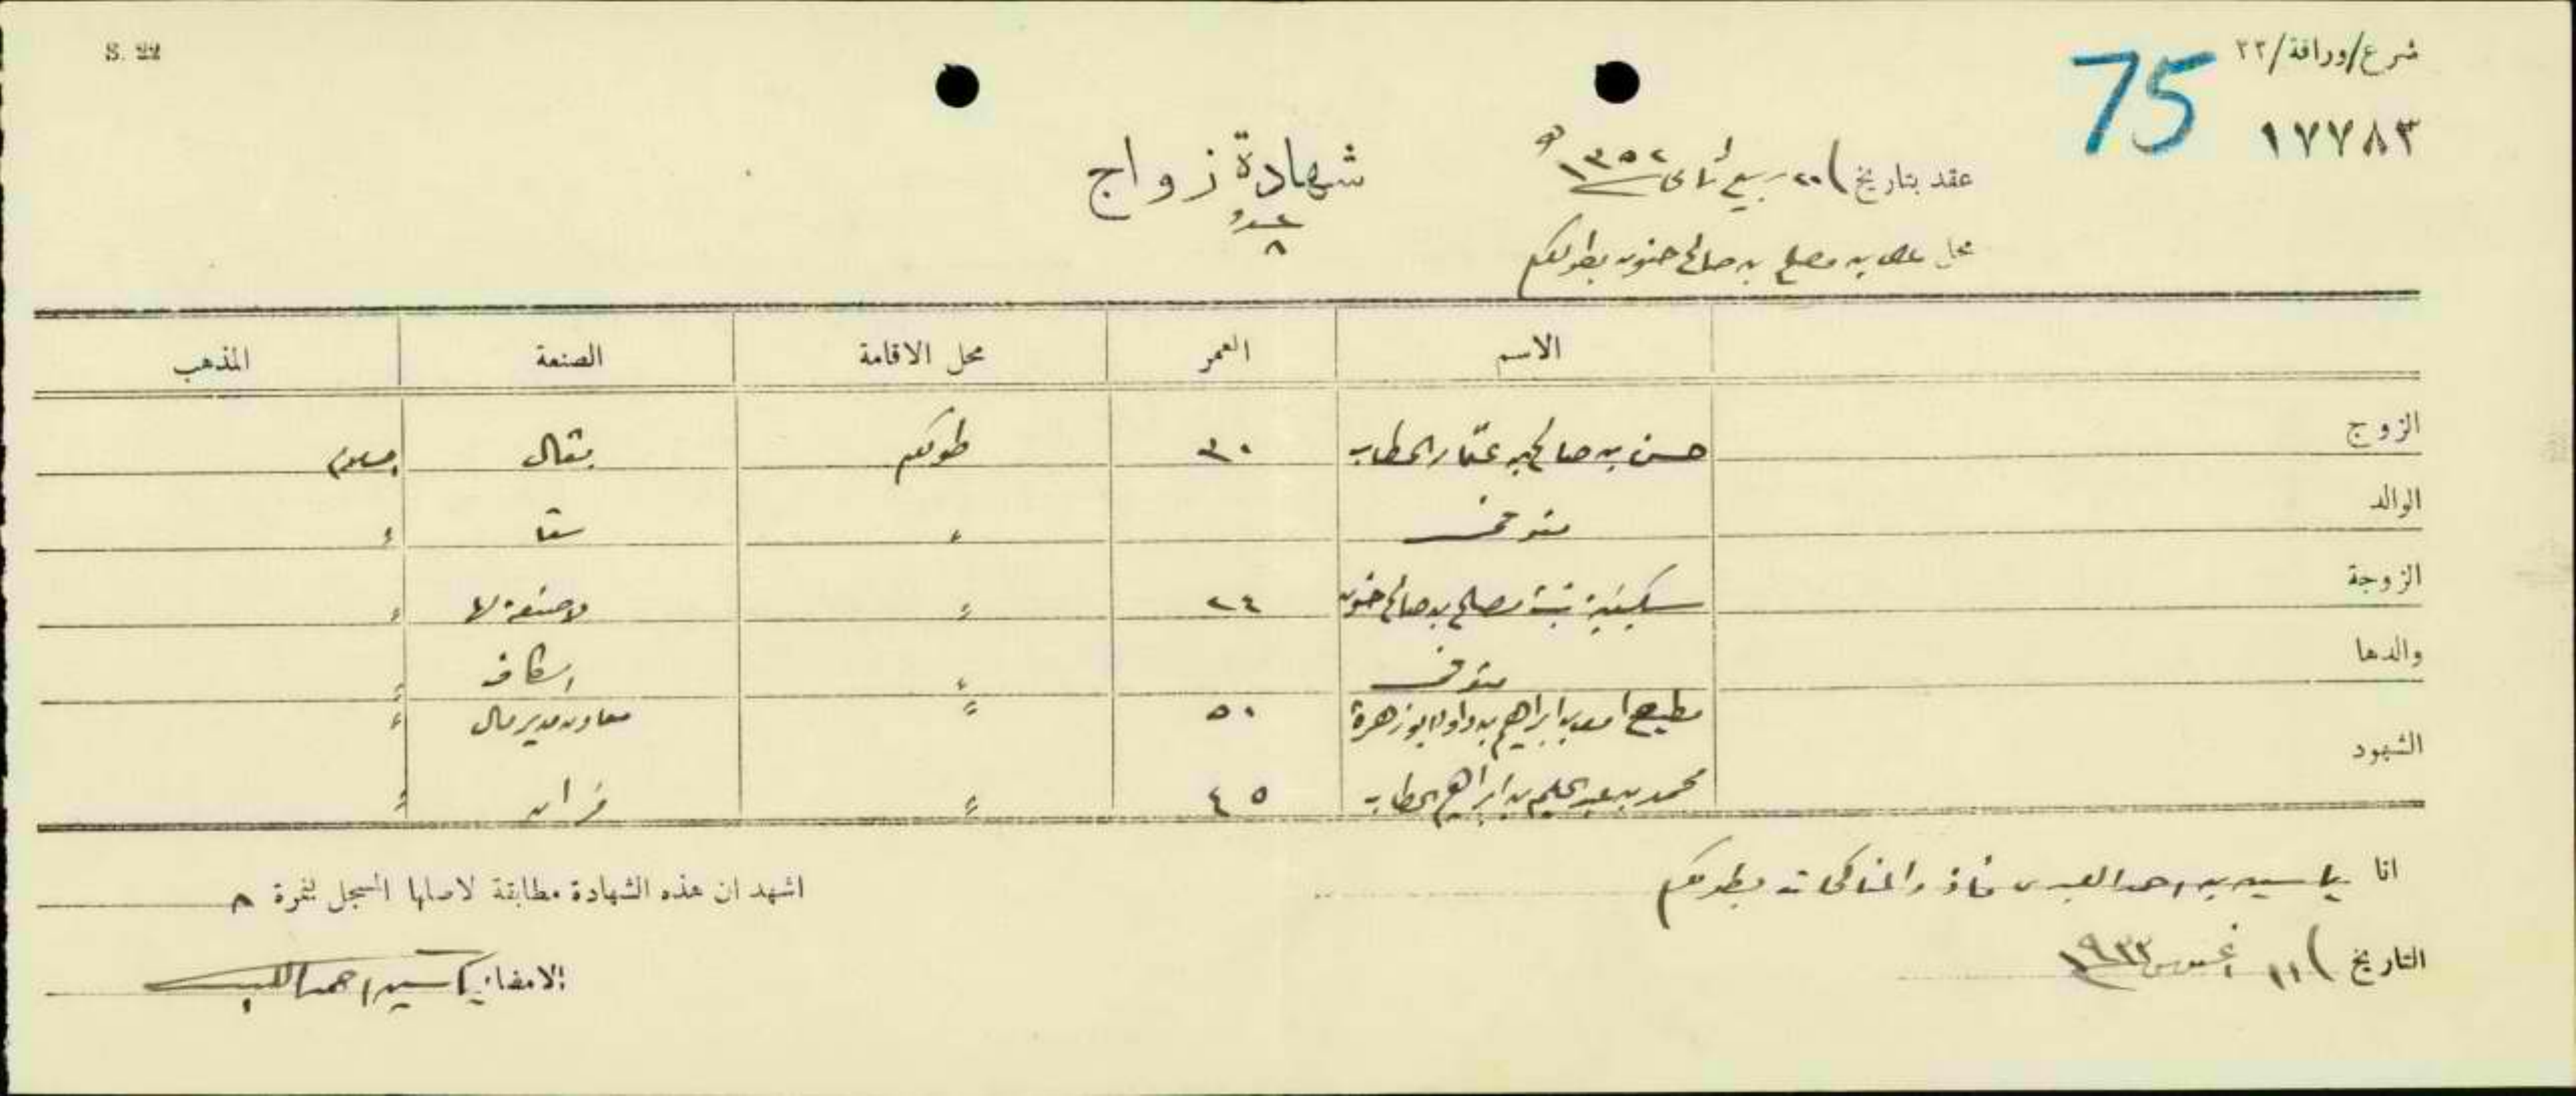 S. 22
شرع/وراقة/٢٢
75
١٧٧٨٣
عقد بتاريخ ٢٠ ربيع ثاني ١٣٥٢ هـ
شهادة زواج
عدد
٨
محل بن مصلح بن صالح حنون بطولكرم
الاسم العمر محل الاقامة الصنعة المذهب
الزوج حسن بن صالح بن الحطاب ٣٠ طولكرم بقال مسلم
الوالد متوفى " سقا "
الزوجة سكينة بنت مصلح بن صالح حنون ٢٤ " لا صنعة لها "
والدها متوفى " اسكاف "
الشهود مطيع بن ابراهيم بن داود ابو زهرة ٥٠ " معاون مدير مال "
محمد بن عبد الحليم بن ابراهيم الحطاب ٤٥ " فران "
انا ياسين بن احمد مأذون المناكحات بطولكرم
اشهد ان هذه الشهادة مطابقة لاصلها المسجل بنمرة ٨
التاريخ ١١ اغسطس ١٩٣٣
الامضاء ياسين احمد